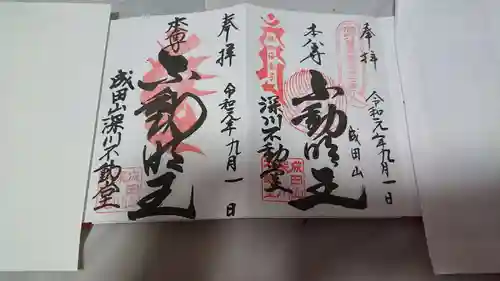 奉拝
令和元年九月一日
本尊
不動明王
成田山
深川不動堂
成田山
奉拝
令和元年九月一日
本尊
不動明王
成田山深川不動堂